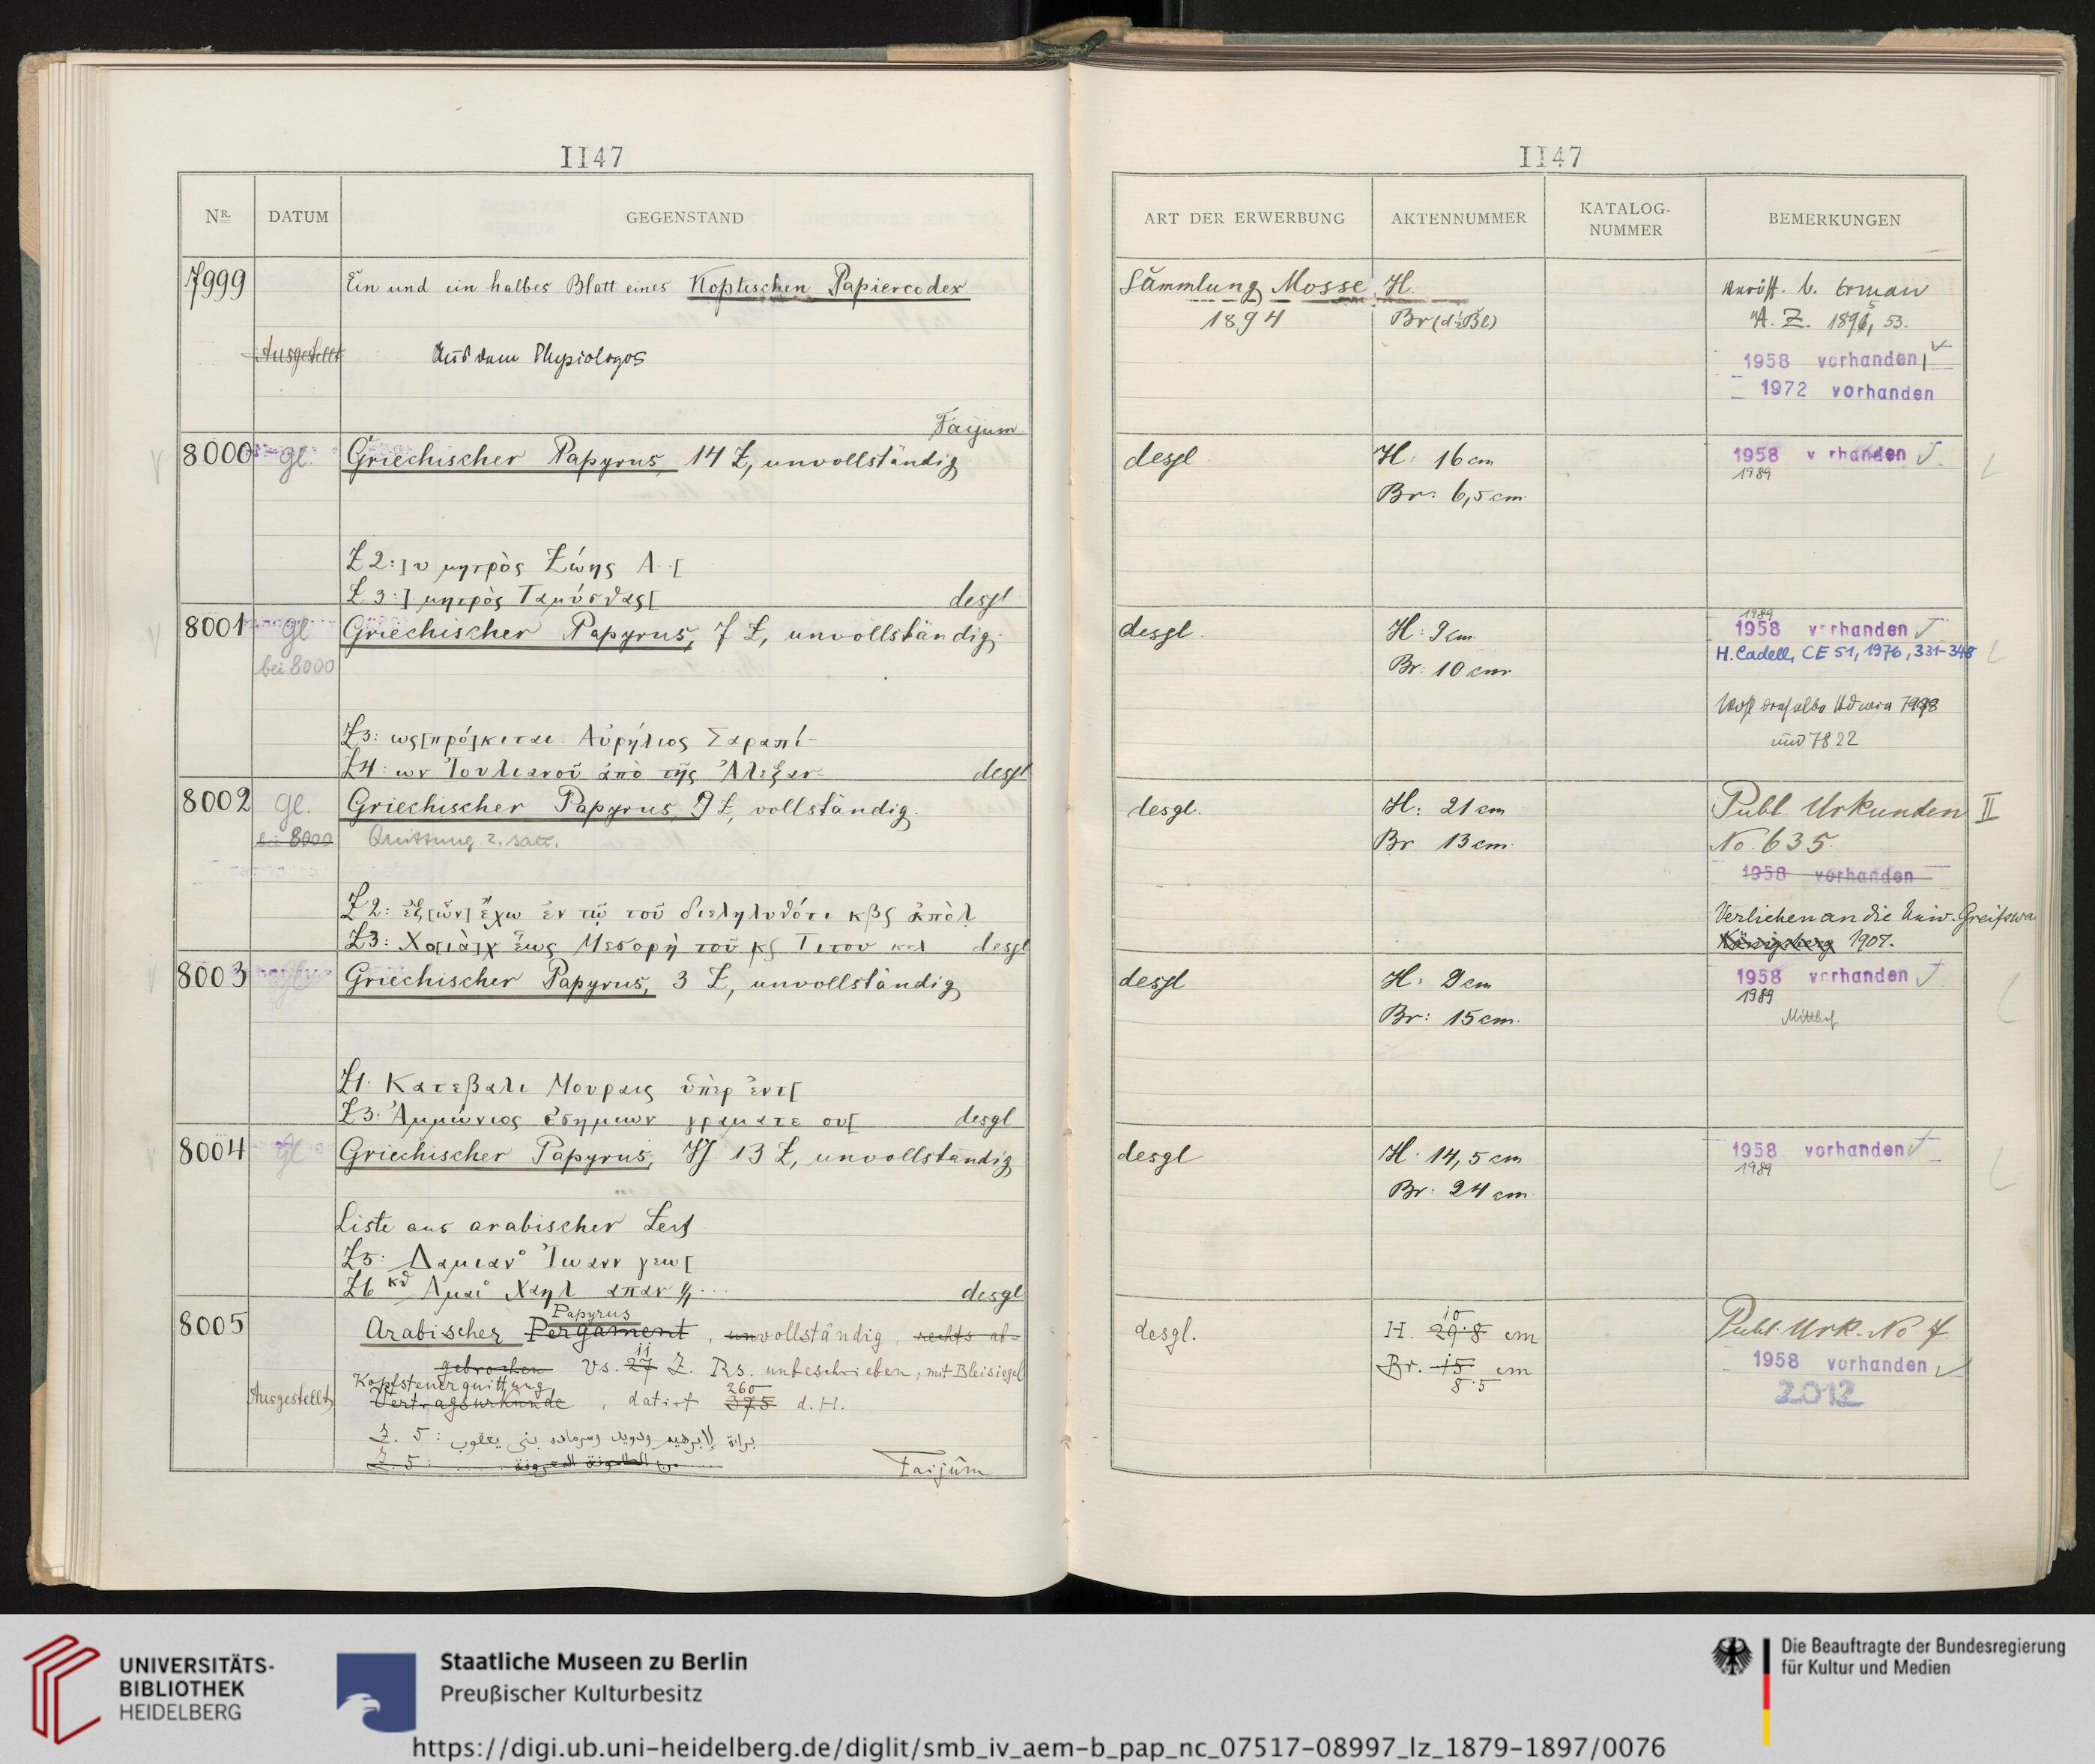 II47
NR. DATUM GEGENSTAND
7999 Ein und ein halbes Blatt eines Koptischen Papiercodex
Ausgestellt Aus dem Physiologos
Faijum
8000 gl. Griechischer Papyrus, 14 Z, unvollständig
Z 2: ]υ μητρὸς Ζώης Λ..[
Z 3: ] μητρὸς Ταμύσθας[ desgl
8001 gl Griechischer Papyrus, 7 Z, unvollständig.
bei 8000
Z3: ως[πρό]κιται Αὐρήλιος Σαραπί-
Z4: ων Ἰουλιανοῦ ἀπὸ τῆς Ἀλεξαν- desgl
8002 gl. Griechischer Papyrus, 9 Z, vollständig.
bei 8000 Quittung
Z 2: ἐξ[ὧν] ἔχω ἐν τῷ τοῦ διεληλυθότι κβς
Z3: Χο[ιὰ]χ ἕως Μεσορὴ τοῦ κς desgl
8003 Griechischer Papyrus, 3 Z, unvollständig
Z1: Κατεβαλι Μουραις ὑπὲρ ἐντ[
Z3: Ἀμμώνιος ἐσημιων γραματε ου[ desgl
8004 gl Griechischer Papyrus, 13 Z, unvollständig
Liste aus arabischer Zeit
Z5: Δαμιανο Ἰωανν γεω[
Z6 desgl
8005 Arabischer Pergament, unvollständig, rechts ab-
Papyrus
gebrochen Vs. 27 Z. Rs. unbeschrieben, mit Bleisiegel
11
Kopfsteuerquittung
Ausgestellt Vertragsurkunde, datirt 375 d. H.
260
Z. 5: براءة لإبرهيم ودويد وسرماده بنى يعقوب
Z. 5:
Faijûm
II47
ART DER ERWERBUNG AKTENNUMMER KATALOG-NUMMER BEMERKUNGEN
Sammlung Mosse H. Erman
1894 Br (d ½ Bl) Ä. Z. 1895, 53.
1958 vorhanden
1972 vorhanden
desgl H: 16 cm 1958 vorhanden
1989
Br: 6,5 cm
1989
desgl. H: 9 cm 1958 vorhanden
Br: 10 cm H. Cadell, CE 51, 1976, 331-348
Wohl dieselbe Hd wie 7998
und 7822
desgl. H: 21 cm Publ Urkunden II
Br 13 cm No. 635.
1958 vorhanden
Verliehen an die Univ. Greifswa
Königsberg 1907.
desgl H: 9 cm 1958 vorhanden
1989
Br: 15 cm. Mitthof
desgl H: 14,5 cm 1958 vorhanden
1989
Br: 24 cm
10
desgl. H. 29.8 cm Publ. Urk. No 7
Br. 15 cm 1958 vorhanden
8.5 2012
UNIVERSITÄTS-
BIBLIOTHEK
HEIDELBERG
Staatliche Museen zu Berlin
Preußischer Kulturbesitz
Die Beauftragte der Bundesregierung
für Kultur und Medien
https://digi.ub.uni-heidelberg.de/diglit/smb_iv_aem-b_pap_nc_07517-08997_lz_1879-1897/0076